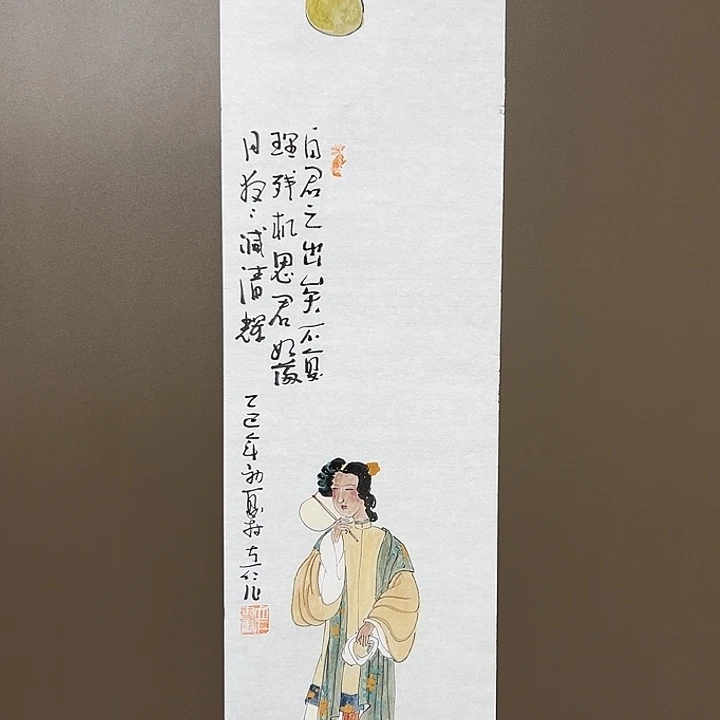 自君之出矣不复
理残机思君如满
月夜〻減清輝
乙巳年初夏